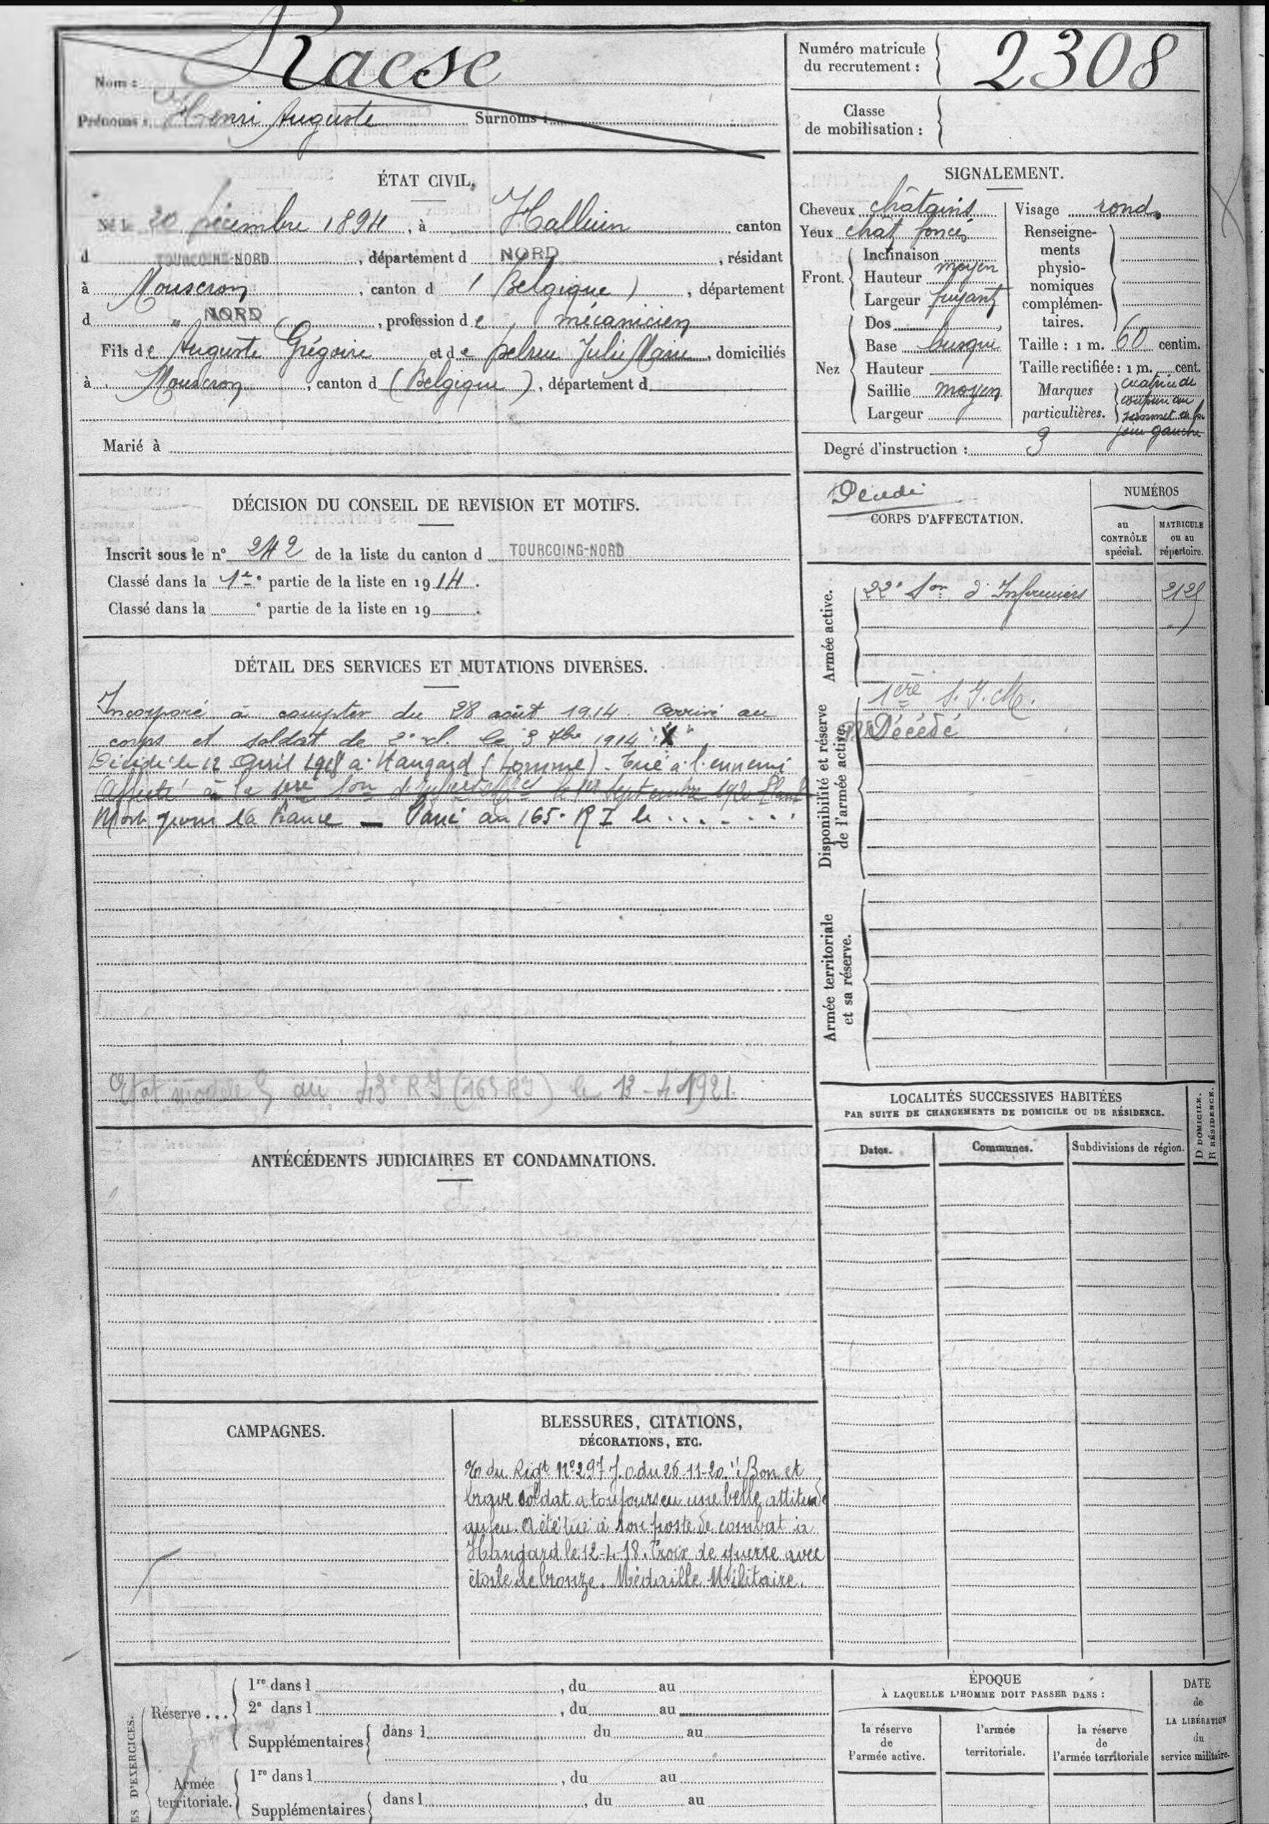 Nom : Raese
Prénoms : Henri Auguste Surnoms :
Numéro matricule du recrutement : 2308
Classe de mobilisation :
ÉTAT CIVIL.
Né le 20 décembre 1894, à Halluin canton
d TOURCOING-NORD, département d NORD, résidant
à Mouscron, canton d (Belgique), département
d " NORD, profession de mécanicien
Fils de Auguste Grégoire et de Julie Marie, domiciliés
à Mouscron, canton d (Belgique), département d
Marié à
SIGNALEMENT.
Cheveux châtains
Yeux chat foncé
Front. Inclinaison moyen
Hauteur
Largeur fuyant
Nez Dos
Base busqué
Hauteur
Saillie moyen
Largeur
Visage rond.
Renseigne-
ments
physio-
nomiques
complémen-
taires.
Taille : 1 m. 60 centim.
Taille rectifiée : 1 m. cent.
Marques particulières. cicatrice de
sommet de la
joue gauche
Degré d'instruction : 3
DÉCISION DU CONSEIL DE REVISION ET MOTIFS.
Inscrit sous le n° 242 de la liste du canton d TOURCOING-NORD
Classé dans la 1re partie de la liste en 1914.
Classé dans la e partie de la liste en 19 .
Décédé
CORPS D'AFFECTATION.
NUMÉROS
au CONTRÔLE spécial.
MATRICULE ou au répertoire.
Armée active.
22e Son d'Infirmiers 2125
Disponibilité et réserve de l'armée active.
1ère S.I.M.
Décédé
Armée territoriale et sa réserve.
DÉTAIL DES SERVICES ET MUTATIONS DIVERSES.
Incorporé à compter du 28 août 1914. Arrivé au
corps et soldat de 2e cl. le 3 7bre 1914 "X"
Décédé le 12 Avril 1918 à Hangard (Somme) - Tué à l'ennemi
Affecté à la 1ère Son le 1er septembre 1920
Mort pour la France — Passé au 165e RI le . . . . . . .
Etat modèle 5 du 43e RI (165 RI) le 13-4-1921.
ANTÉCÉDENTS JUDICIAIRES ET CONDAMNATIONS.
LOCALITÉS SUCCESSIVES HABITÉES
PAR SUITE DE CHANGEMENTS DE DOMICILE OU DE RÉSIDENCE.
Dates.
Communes.
Subdivisions de région.
D DOMICILE.
R RÉSIDENCE.
CAMPAGNES.
BLESSURES, CITATIONS,
DÉCORATIONS, ETC.
du Rigt N°297 J.O du 26-11-20. "Bon et
brave soldat a toujours eu une belle attitude
au feu. A été tué à son poste de combat à
Hangard le 12-4-18. Croix de guerre avec
étoile de bronze. Médaille Militaire.
ES D'EXERCICES.
Réserve ... 1re dans l , du au
2e dans l , du au
Supplémentaires dans l du au
Armée territoriale. 1re dans l , du au
Supplémentaires dans l , du au
ÉPOQUE
À LAQUELLE L'HOMME DOIT PASSER DANS :
la réserve de l'armée active.
l'armée territoriale.
la réserve de l'armée territoriale
DATE
de
LA LIBÉRATION
du
service militaire.